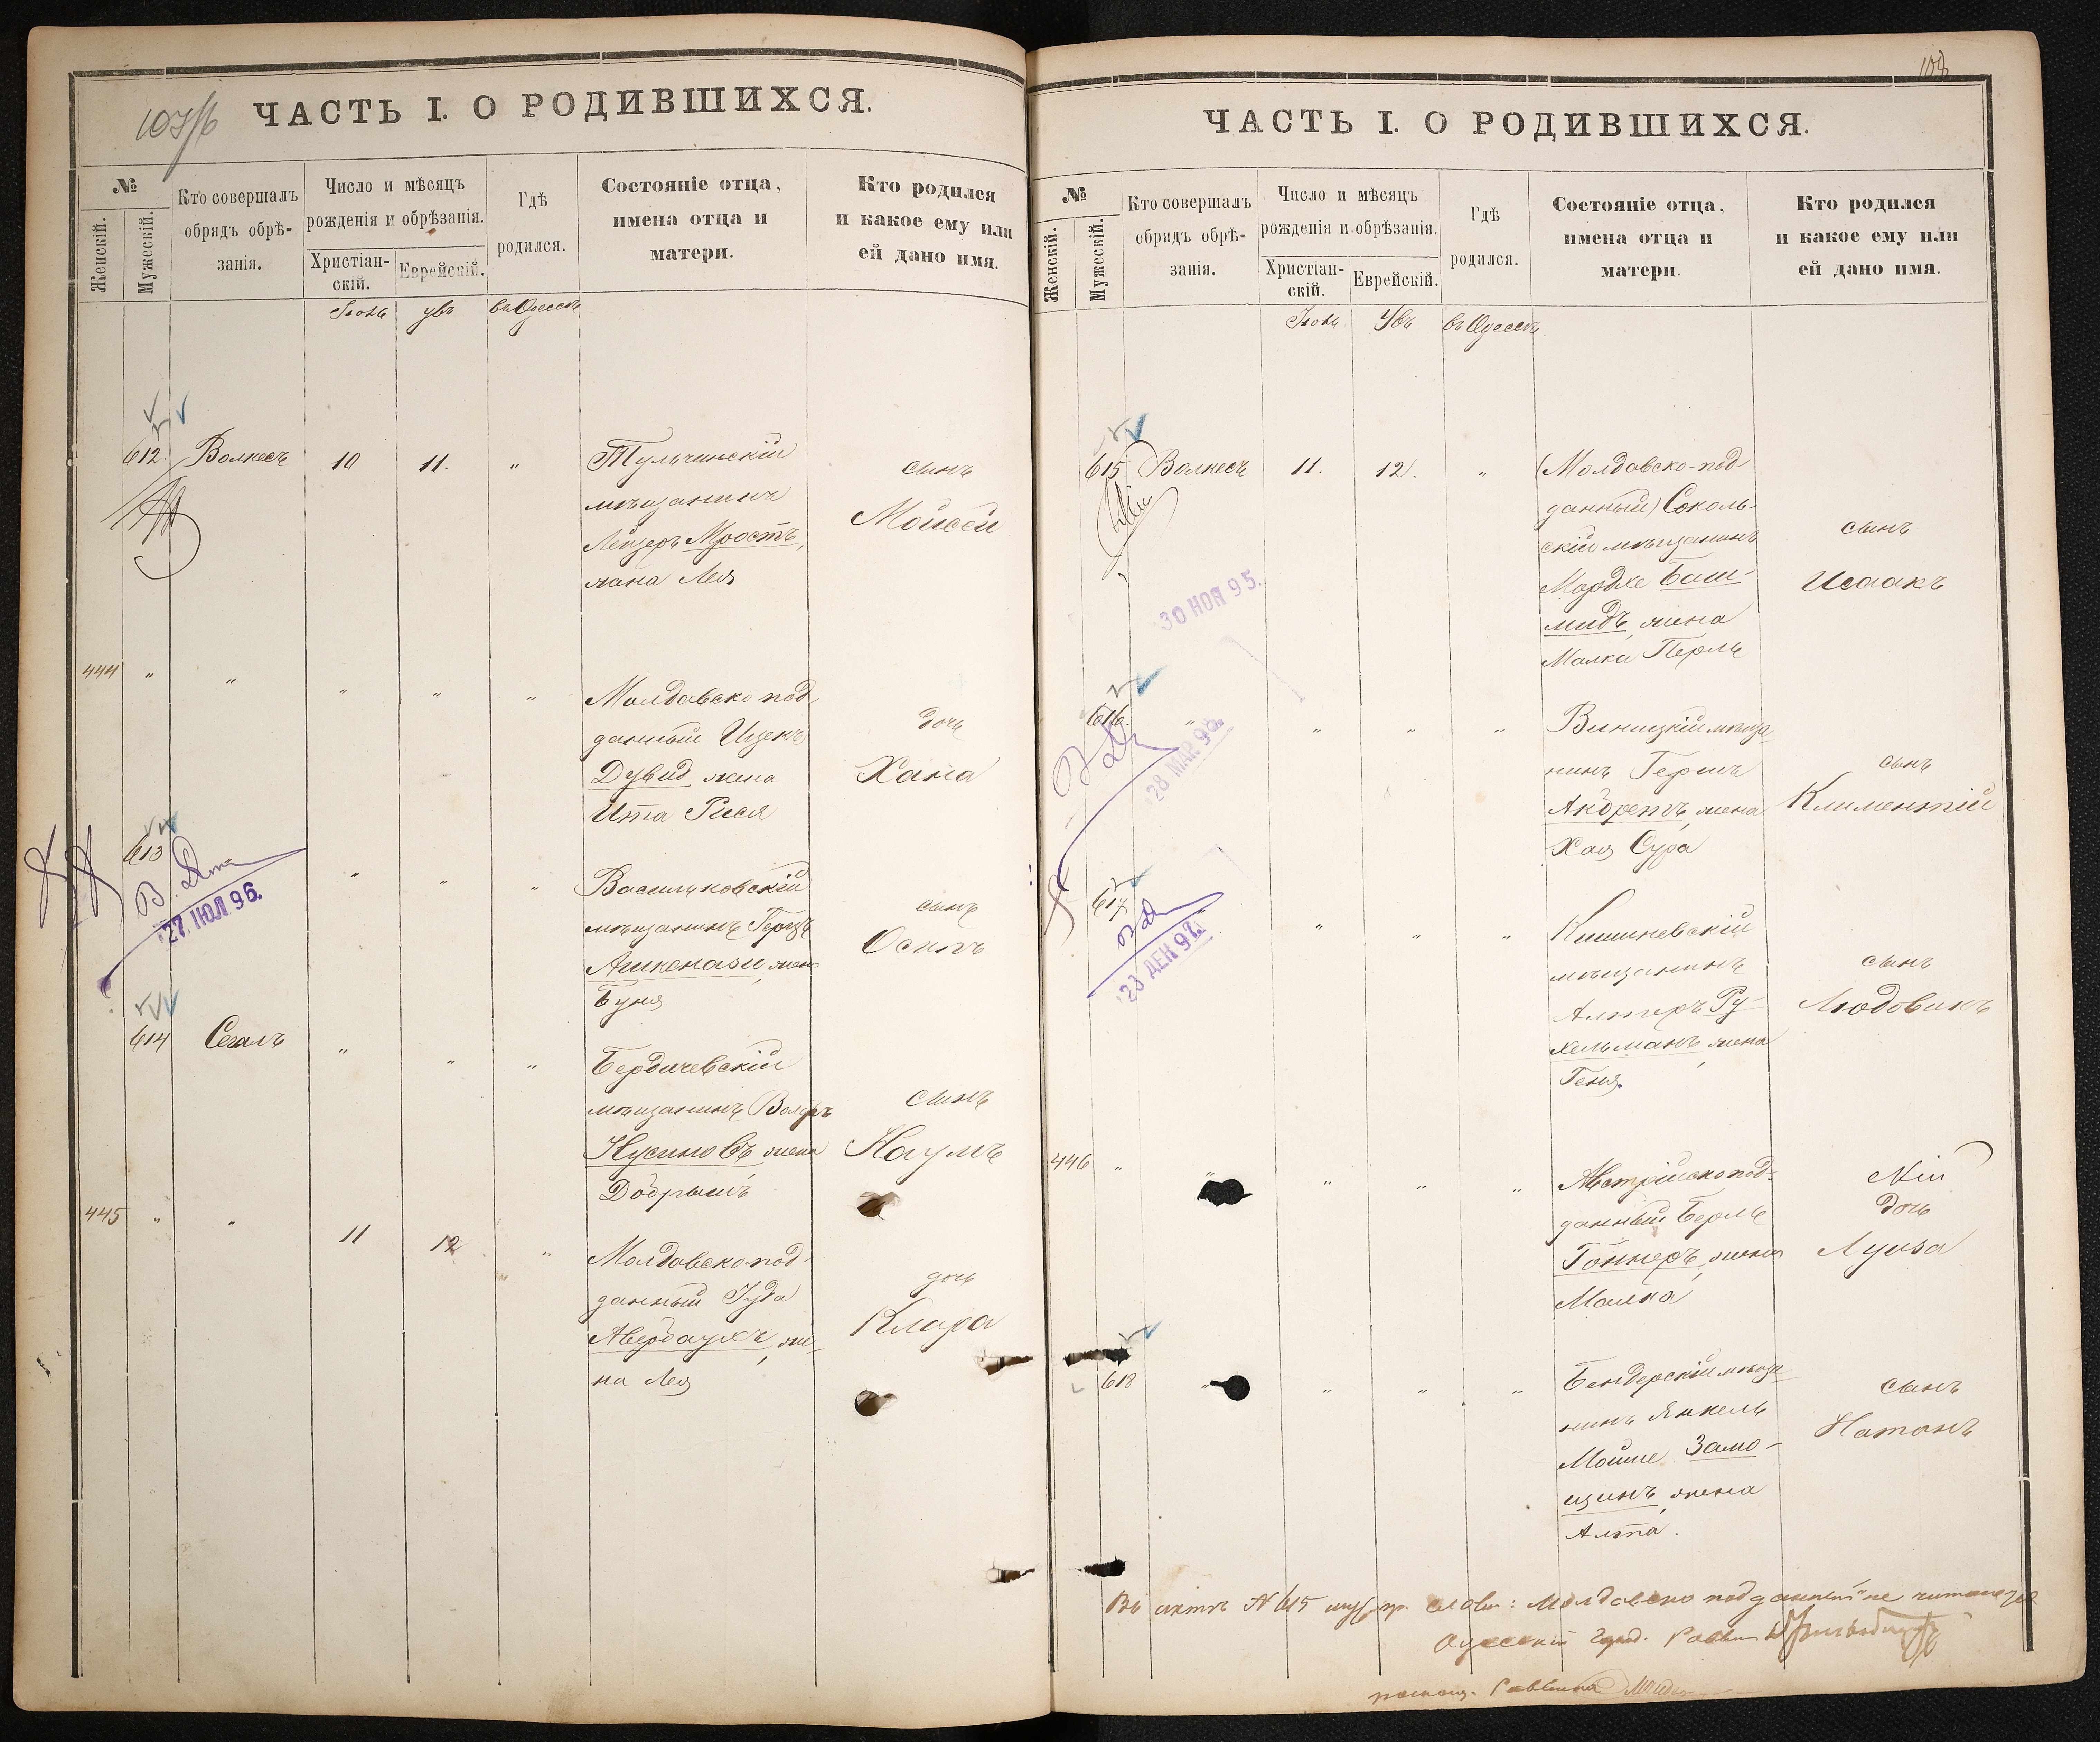 ЧАСТЬ I. О РОДИВШИХСЯ.
№
Женскій.
Мужескій.
Кто совершалъ
обрядъ обрѣ-
занія.
Число и мѣсяцъ
рожденія и обрѣзанія.
Христіан-
скій.
Еврейскій.
Гдѣ
родился.
Состояніе отца,
имена отца и
матери.
Кто родился
и какое ему или
ей дано имя.
въ Одессѣ
612. Волкесъ 10 11. „
Тульчинскій
мѣщанинъ
Лейзеръ Мростъ,
жена Лея
сынъ
Мойсей
444 „ „ „ „ „
Молдавско под
данный Ицекъ
Дувид жена
Ита Рися
дочь
Хана
613 „ „ „
27. ІЮЛ 96.
Васильковскій
мѣщанинъ Герцъ
Ашкенази, жена
Буня
сынъ
Осипъ
614 Сегалъ „ „ „
Бердичевскій
мѣщанинъ Вольфъ
Нусиновъ жена
Добрышъ
сынъ
Наумъ
445 „ „ 11 12 „
Молдавскопод-
данный Іуда
Авербаухъ, же-
на Лея
дочь
Клара
108
ЧАСТЬ I. О РОДИВШИХСЯ.
№
Женскій.
Мужескій.
Кто совершалъ
обрядъ обрѣ-
занія.
Число и мѣсяцъ
рожденія и обрѣзанія.
Христіан-
скій.
Еврейскій.
Гдѣ
родился.
Состояніе отца,
имена отца и
матери.
Кто родился
и какое ему или
ей дано имя.
въ Одессѣ
615. Волкесъ 11. 12. „
30 НОЯ 95.
(Молдавско-под
данный) Соколь-
скій мѣщанинъ
Мордхе Баш-
мидъ, жена
Малка Перль
сынъ
Исаакъ
616. „ „ „ „
28 МАР. 98.
Виницкій мѣща-
нинъ Гершъ
жена
Хая Сура
сынъ
Климентій
617 „ „ „
23 ДЕК 97.
Кишиневскій
мѣщанинъ
Алтеръ Ру-
хельманъ, жена
Геня.
сынъ
Людовикъ
446 „ „ „ „ „
Австрійскопод-
данный Берль
Тоннеръ, жена
Малка
дочь
Луиза
618 „ „ „ „
Бендерскій мѣща
нинъ Янкель
Мойше Замо-
щинъ, жена
Алта.
сынъ
Натанъ
Въ актѣ N 615 слова: Молдавско подданный не читать
Одесскій Раввинъ
Раввина